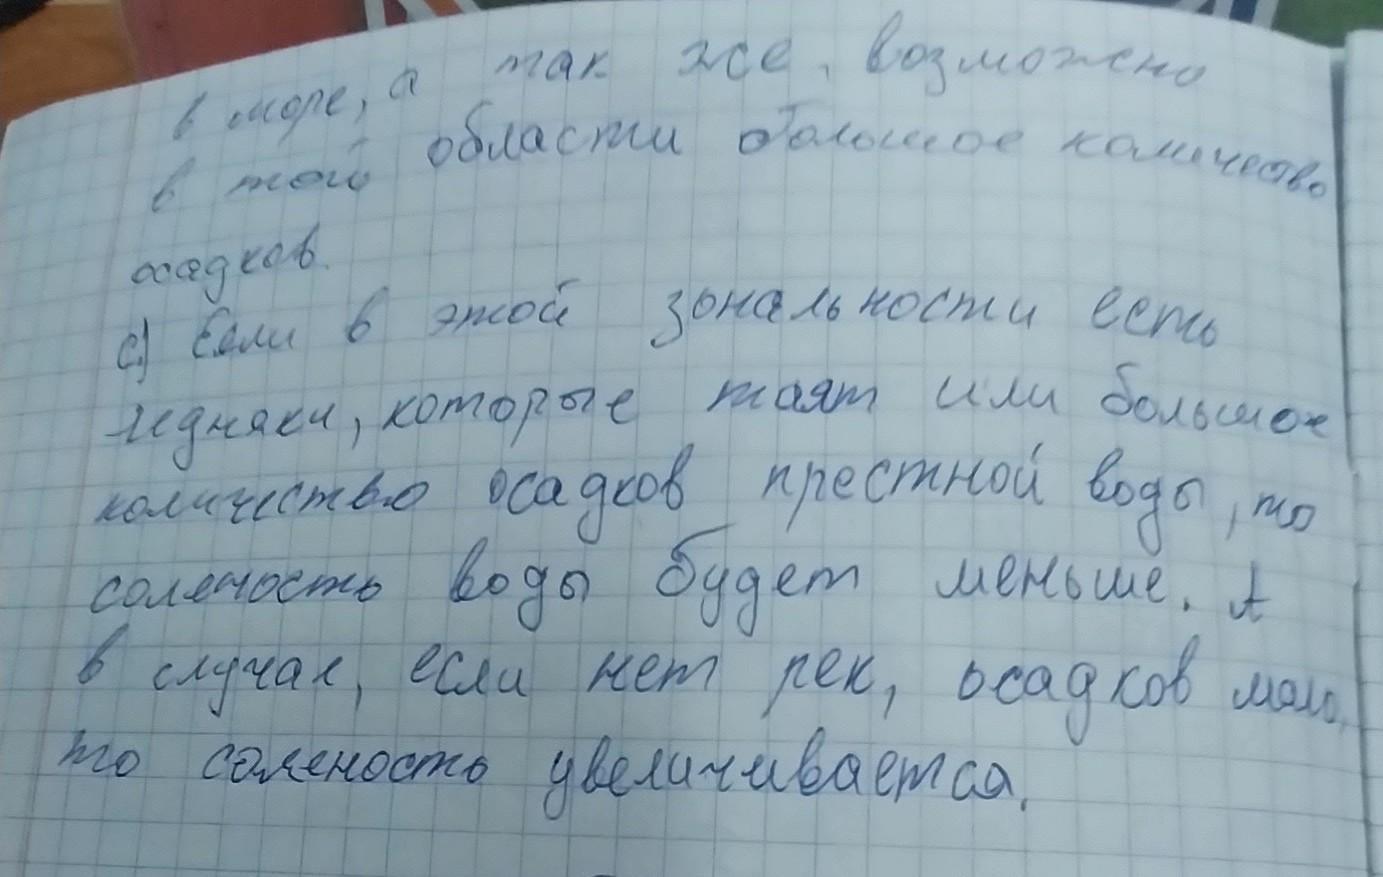 в море, а так же, возможно
в той области большое количество
осадков.
с) Если в этой зональности есть
ледняки, которые таят или большое
количество осадков престной воды, то
соленость воды будет меньше. А
в случае, если нет рек, осадков мало,
то соленость увеличивается.